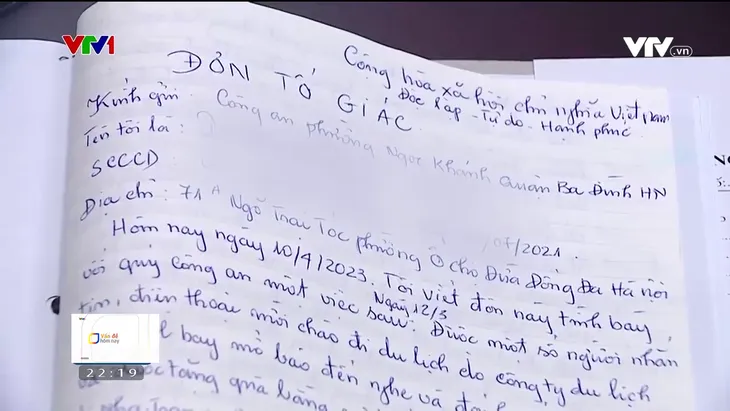 VTV1
VTV.vn
Cộng hòa xã hội chủ nghĩa Việt Nam
Độc lập - Tự do - Hạnh phúc
ĐƠN TỐ GIÁC
Kính gửi: Công an phường Ngọc Khánh Quận Ba Đình HN
Tên tôi là:
SCCCD: /2021.
Địa chỉ: 71A Ngõ Trại Tóc phường Ô chợ Dừa Đống Đa Hà Nội
Hôm nay ngày 10/4/2023. Tôi viết đơn này trình bày
với quý công an một việc sau: Ngày 12/3 Được một số người nhắn
tin, điện thoại mời chào đi du lịch do công ty du lịch
bay mở bảo đến nghe và
tặng quà bằng
Vấn đề
hôm nay
22:19